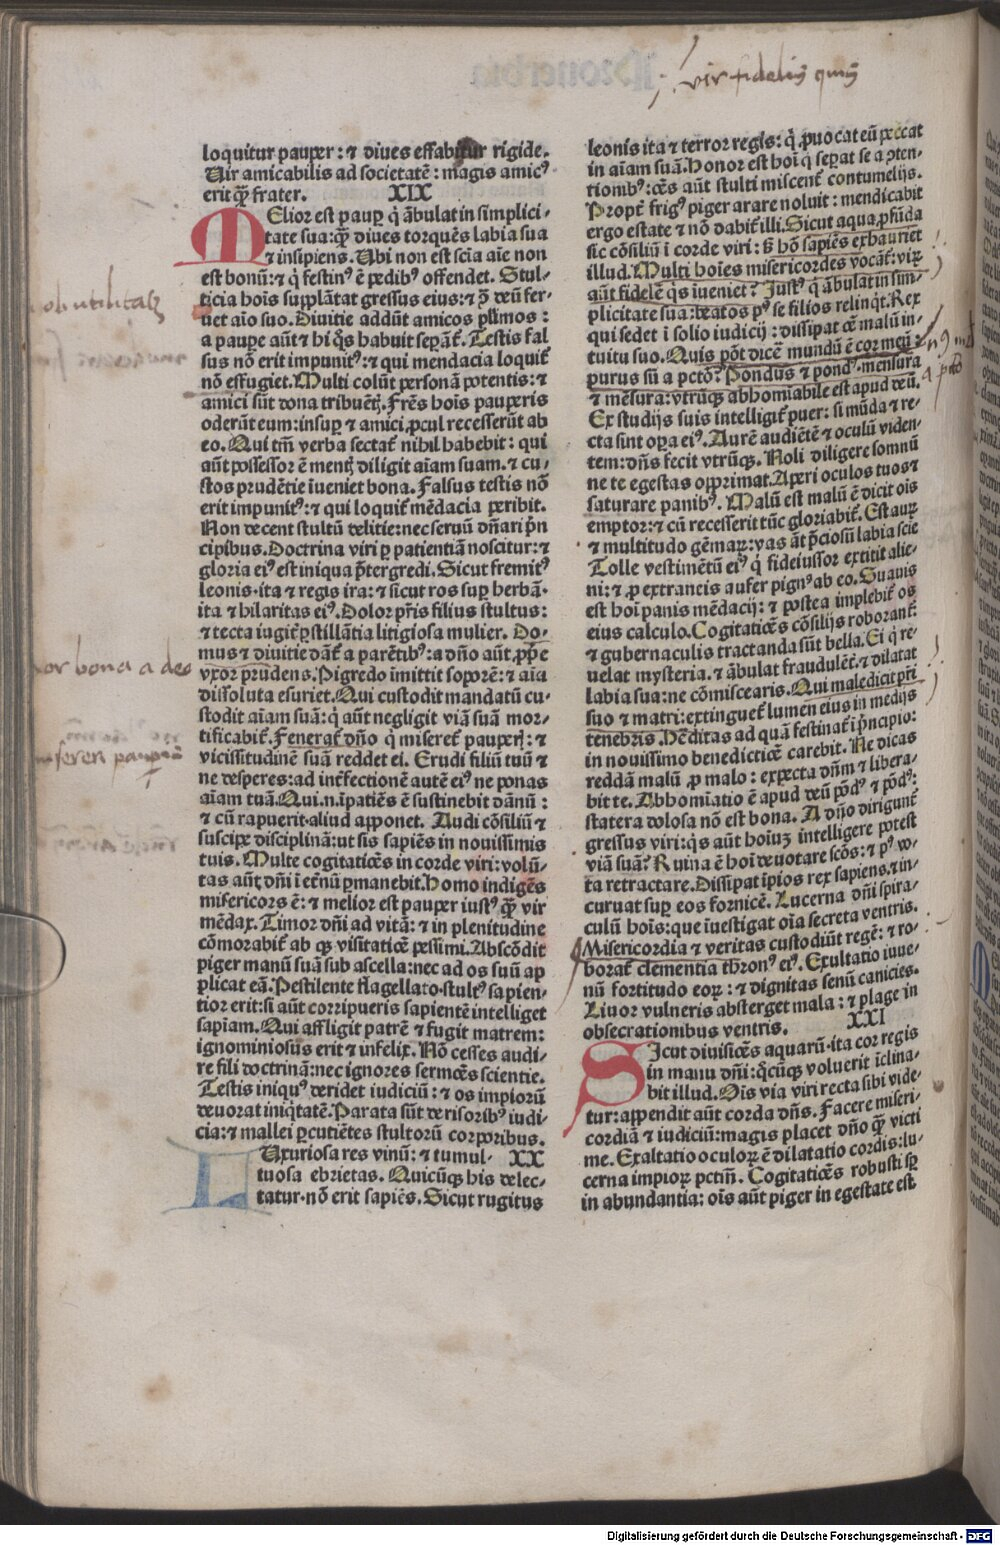 vir fidelis quis
loquitur pauper: ⁊ diues effabitur rigide.
Vir amicabilis ad societatē: magis amicꝰ
erit q̄ȝ frater. XIX
MElior est paup̲ q̇ ābulat in simplici-
tate sua: q̄ȝ diues torquēs labia sua
⁊ insipiens. Vbi non est scīa aīe non
est bonū: ⁊ q̇ festinꝰ ē pedibꝰ offendet. Stul-
ticia hoīs supplātat gressus eius: ⁊ ꝯ̄ deū fer-
uet aīo suo. Diuitie addūt amicos plīmos:
a paupe aūt ⁊ hi q̇s habuit sepāt̄. Testis fal
sus nō erit impunitꝰ: ⁊ qui mendacia loquit̄
nō effugiet. Multi colūt personā potentis: ⁊
amici sūt dona tribuētꝭ. Frēs hoīs pauperis
oderūt eum: insup̲ ⁊ amici ꝓcul recesserūt ab
eo. Qui tm̄ verba sectat̄ nihil habebit: qui
aūt possessor ē mentꝭ diligit aīam suam. ⁊ cu-
stos prudētie īueniet bona. Falsus testis nō
erit impunitꝰ: ⁊ qui loquit̄ mēdacia peribit.
Non decent stultū delitie: nec seruū dn̄ari p̄n
cipibus. Doctrina viri p̲ patientiā noscitur: ⁊
gloria eiꝰ est iniqua p̄tergredi. Sicut fremitꝰ
leonis. ita ⁊ regis ira: ⁊ sicut ros sup̲ herbā.
ita ⁊ hilaritas eiꝰ. Dolor pr̄is filius stultus:
⁊ tecta iugit̄ p̲stillātia litigiosa mulier. Do-
mus ⁊ diuitie dāt̄ a parētibꝰ: a dn̄o aūt ꝓp̄e
vxor prudens. Pigredo imittit soporē: ⁊ aīa
dissoluta esuriet. Qui custodit mandatū cu-
stodit aīam suā: q̇ aūt negligit viā suā mor-
tificabit̄. Fenerat̄ dn̄o q̇ miseret̄ pauperꝭ: ⁊
vicissitudinē suā reddet ei. Erudi filiū tuū ⁊
ne desperes: ad int̄fectionē autē eiꝰ ne ponas
aīam tuā. Qui.n.īpatiēs ē sustinebit dānū:
⁊ cū rapuerit aliud apponet. Audi cōsiliū ⁊
suscipe disciplinā: ut sis sapiēs in nouissimis
tuis. Multe cogitatiōēs in corde viri: volū-
tas aūt dn̄i ī et̄nū p̲manebit. Homo indigēs
misericors ē: ⁊ melior est pauper iustꝰ q̄ȝ vir
mēdax. Timor dn̄i ad vitā: ⁊ in plenitudine
cōmorabit̄ ab qꝫ visitatiōē pessimi. Abscōdit
piger manū suā sub ascella: nec ad os suū ap
plicat eā. Pestilente flagellato. stultꝰ sapien-
tior erit: si aūt corripueris sapientē intelliget
sapīam. Qui affligit patrē ⁊ fugit matrem:
ignominiosus erit ⁊ infelix. Nō cesses audi-
re fili doctrinā: nec ignores sermōēs scientie.
Testis iniquꝰ deridet iudiciū: ⁊ os impiorū
deuorat iniq̇tatē. Parata sūt derisoribꝰ iudi-
cia: ⁊ mallei p̲cutiētes stultorū corporibus.
LUxuriosa res vinū: ⁊ tumul- XX
tuosa ebrietas. Quicūqꝫ his delec-
tatur. nō erit sapiēs. Sicut rugitus
ob utilitatē
uxor bona a deo
miseren pauperū
leonis ita ⁊ terror regis: q̇ ꝓuocat eū peccat
in aīam suā. Honor est hoī q̇ sep̲at se a ꝯten-
tionibꝰ: oēs aūt stulti miscent̄ contumelijs.
Propt̄ frigꝰ piger arare noluit: mendicabit
ergo estate ⁊ nō dabit̄ illi. Sicut aqua ꝓfūda
sic cōsiliū ī corde viri: sꝫ hō sapiēs exhauriet
illud. Multi hoīes misericordes vocāt̄: virꝫ
aūt fidelē q̇s īueniet? Justꝰ q̇ ābulat in sim-
plicitate sua: beatos pꝰ se filios relinq̇t. Rex
qui sedet ī solio iudicij: dissipat oē malū in-
tuitu suo. Quis pōt dicē mundū ē cor meū
purus sū a pctō? Pondus ⁊ pondꝰ. mensura
⁊ mēsura: vtrūqꝫ abhomīabile est apud deū.
Ex studijs suis intelligit̄ puer: si mūda ⁊ re-
cta sint op̲a eiꝰ. Aurē audiētē ⁊ oculū viden-
tem: dn̄s fecit vtrūqꝫ. Noli diligere somnū
ne te egestas opprimat. Aperi oculos tuos ⁊
saturare panibꝰ. Malū est malū ē dicit oīs
emptor: ⁊ cū recesserit tūc gloriabit̄. Est auꝝ
⁊ multitudo gēmaꝝ: vas āt p̄ciosū labia scīe
Tolle vestimētū eiꝰ q̇ fideiussor extitit alie-
ni: ⁊ ꝓ extraneis aufer pignꝰ ab eo. Suauis
est hoī panis mēdacij: ⁊ postea implebit̄ os
eius calculo. Cogitatiōēs cōsilijs roborant̄:
⁊ gubernaculis tractanda sūt bella. Ei q̇ re-
uelat mysteria. ⁊ ābulat fraudulēt̄. ⁊ dilatat
labia sua: ne cōmiscearis. Qui maledicit pr̄i
suo ⁊ matri: extinguet̄ lumen eius in medijs
tenebris. Hēditas ad quā festinat̄ ī p̄ncipio:
in nouissimo benedictiōē carebit. Ne dicas
reddā malū ꝓ malo: expecta dn̄m ⁊ libera-
bit te. Abhomīatio ē apud deū pōdꝰ ⁊ pōdꝰ:
statera dolosa nō est bona. A dn̄o dirigunt̄
gressus viri: q̇s aūt hoīuꝫ intelligere potest
viā suā? Ruina ē hoī deuotare scōs: ⁊ pꝰ vo-
ta retractare. Dissipat īpios rex sapiens. ⁊ in-
curuat sup̲ eos fornicē. Lucerna dn̄i spira-
culū hoīs: que īuestigat oīa secreta ventris.
Misericordia ⁊ veritas custodiūt regē: ⁊ ro-
borat̄ clementia thronꝰ eiꝰ. Exultatio iuue-
nū fortitudo eoꝝ: ⁊ dignitas senū canicies.
Liuor vulneris absterget mala: ⁊ plage in
obsecrationibus ventris. XXI
SIcut diuisiōēs aquarū. ita cor regis
in manu dn̄i: q̇cūqꝫ voluerit īclina-
bit illud. Oīs via viri recta sibi vide-
tur: appendit aūt corda dn̄s. Facere miseri-
cordiā ⁊ iudiciū: magis placet dn̄o q̄ȝ victi
me. Exaltatio oculoꝝ ē dilatatio cordis: lu-
cerna impioꝝ pctm̄. Cogitatiōēs robusti sp̲
in abundantia: oīs aūt piger in egestate est
Digitalisierung gefördert durch die Deutsche Forschungsgemeinschaft - DFG